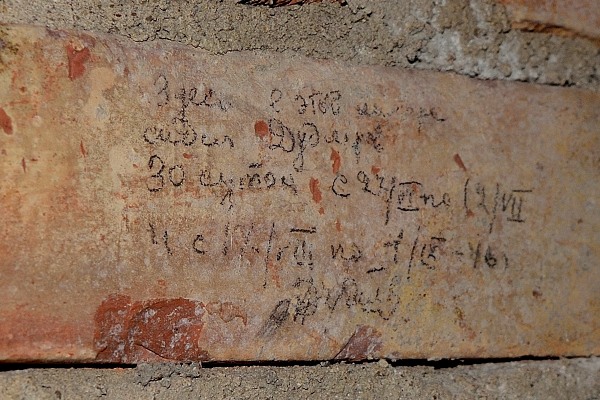 Здесь в этой камере
сидел
30 суток с 27/VI по 12/VII
И с 17/VIII по 1/IX-46г